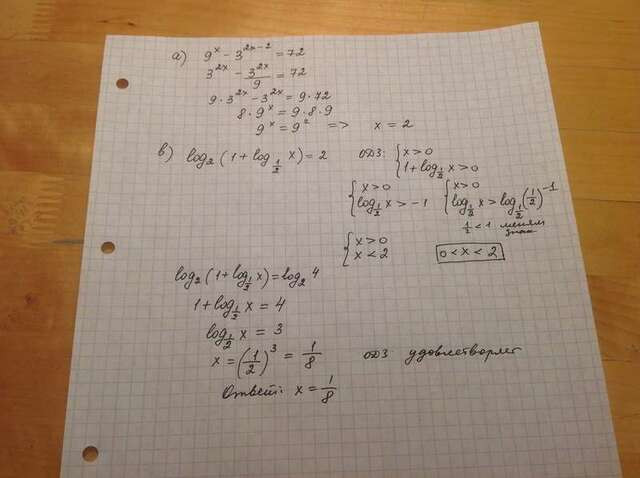 а) 9^x − 3^{2x−2} = 72
3^{2x} − 3^{2x}/9 = 72
9·3^{2x} − 3^{2x} = 9·72
8·9^x = 9·8·9
9^x = 9^2 => x = 2
в) log₂(1 + log_{1/2} x) = 2 ОДЗ: { x > 0
1 + log_{1/2} x > 0
{ x > 0 { x > 0
log_{1/2} x > −1 log_{1/2} x > log_{1/2} (1/2)^{−1}
1/2 < 1 меняем
знак
{ x > 0
x < 2 0 < x < 2
log₂(1 + log_{1/2} x) = log₂ 4
1 + log_{1/2} x = 4
log_{1/2} x = 3
x = (1/2)^3 = 1/8 ОДЗ удовлетворяет
Ответ: x = 1/8